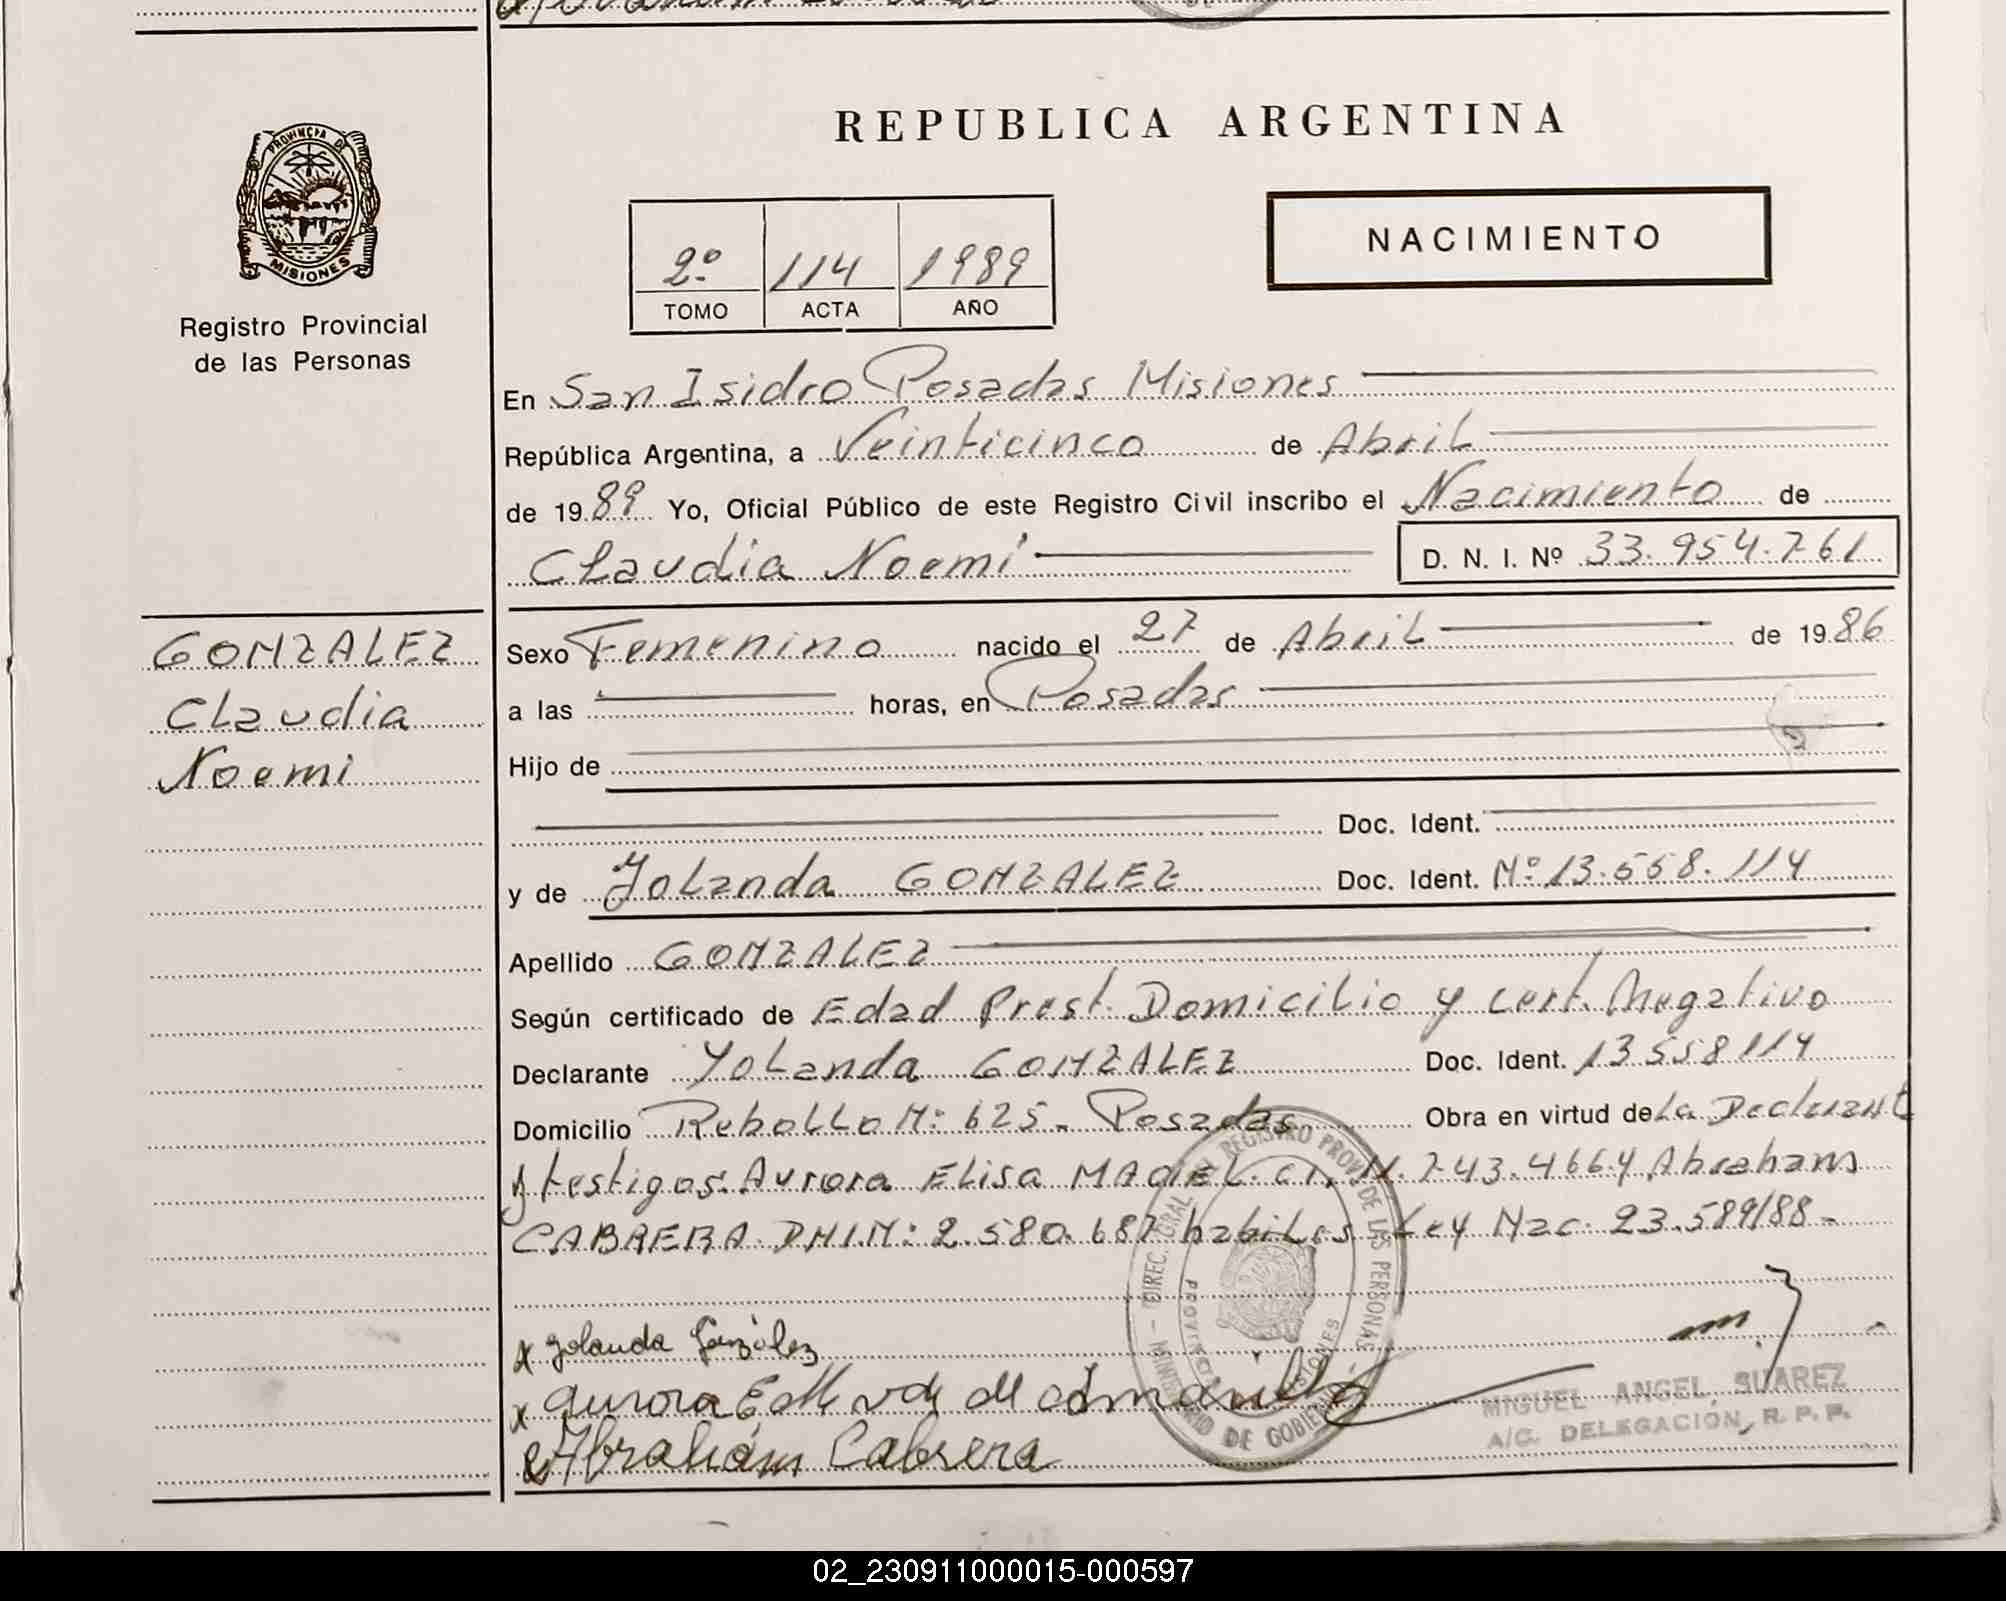 PROVINCIA DE
MISIONES
Registro Provincial
de las Personas
REPUBLICA ARGENTINA
2º 114 1989
TOMO ACTA AÑO
NACIMIENTO
En San Isidro Posadas Misiones
República Argentina, a Veinticinco de Abril
de 1989 Yo, Oficial Público de este Registro Civil inscribo el Nacimiento de
Claudia Noemi D. N. I. Nº 33.954.761
GONZALEZ
Claudia
Noemi
Sexo Femenino nacido el 27 de Abril de 1986
a las horas, en Posadas
Hijo de
Doc. Ident.
y de Yolanda GONZALEZ Doc. Ident. Nº 13.558.114
Apellido GONZALEZ
Según certificado de Edad Prest. Domicilio y cert. Negativo
Declarante Yolanda GONZALEZ Doc. Ident. 13558114
Domicilio Rebollo Nº 625 - Posadas Obra en virtud de La Declarant
y testigos: Aurora ELisa MACIEL. C.I. N. 243.4664 Abraham
CABRERA DNI.N: 2.580.687 habiles Ley Nac. 23.589/88-
x Yolanda González
x Aurora
x Abrahám Cabrera
MIGUEL ANGEL SUAREZ
A/C. DELEGACIÓN, R. P. P.
DIREC. GRAL REGISTRO PROV. DE LAS PERSONAS
PROVINCIA MISIONES
DE GOBIERNO
02_230911000015-000597